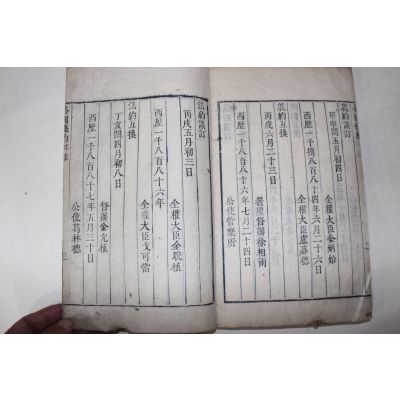 義約議訂
甲申閏五月初四日
全權大臣金炳始
西歷一千八百八十四年六月二十六日
全權大臣盧嘉德
義約互換
丙戌六月二十三日
署理督辦徐相雨
西歷一千八百八十六年七月二十四日
公使管樂所
法約議訂
丙戌五月初三日
全權大臣金晩植
西歷一千八百八十六年
全權大臣戈可當
法約互換
丁亥閏四月初八日
督辦金允植
西歷一千八百八十七年五月三十日
公使葛林德